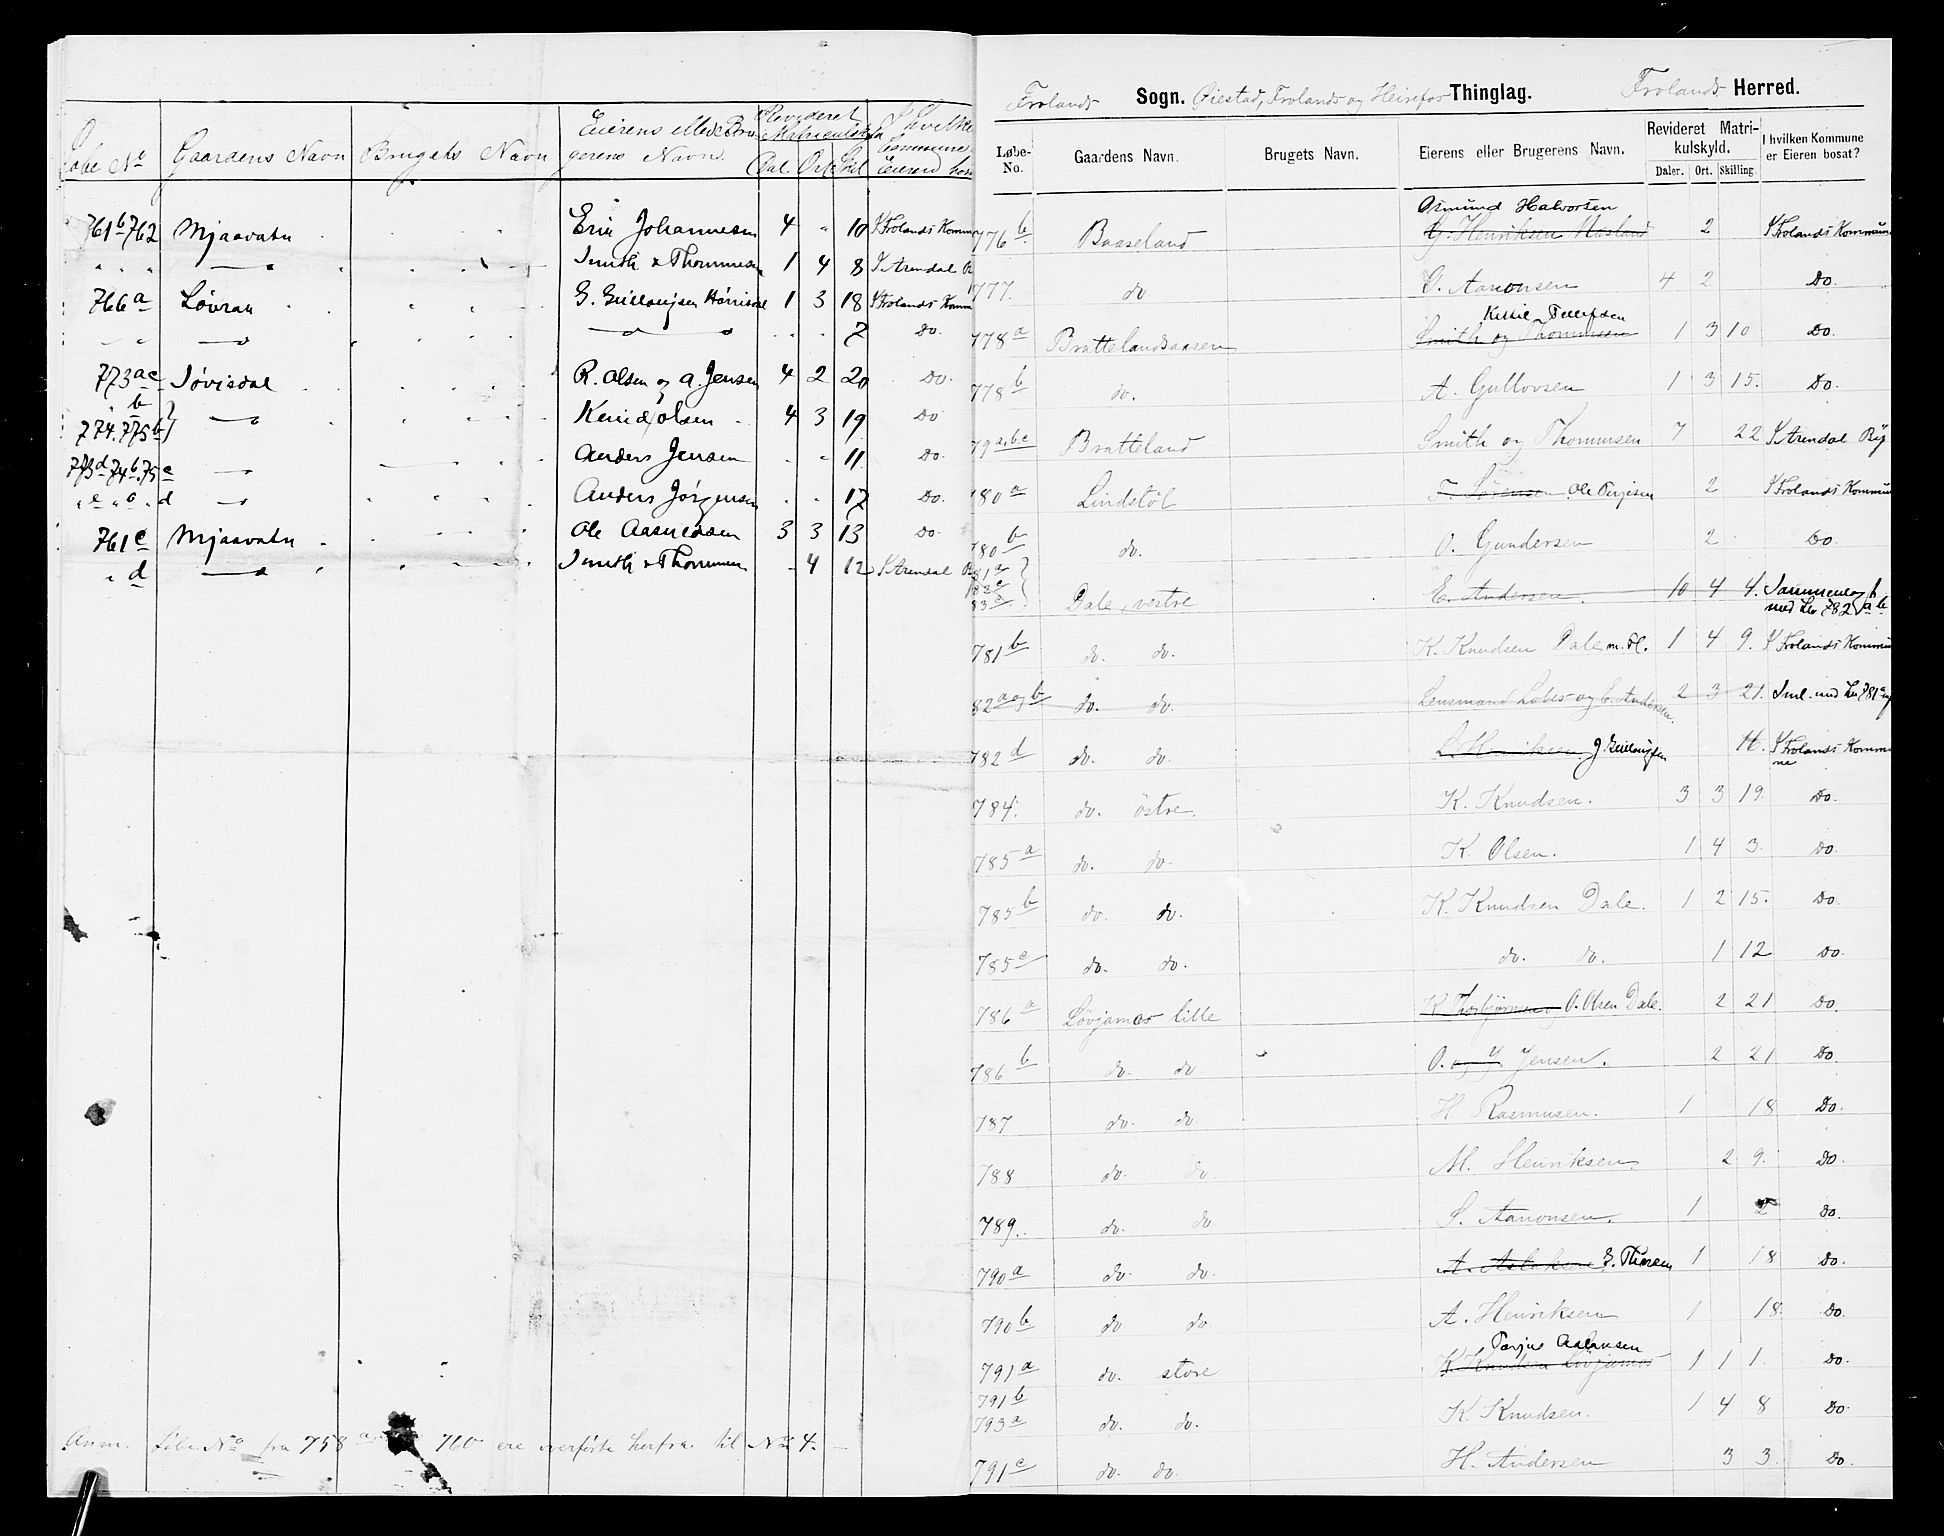 Løbe No Gaardens Navn Brugets Navn Eierens eller Bru- Revideret I hvilken
gerens Navn. Matriculskyld Commune er
Dal. Ort Skil Eieren bosat
761b 762 Mjaavatn Erik Johannesen 4 " 10 I Frolands Kommune
" " " — Smith & Thommesen 1 4 8 I Arendal By
766a Løvrak G. Gullougsen 1 3 18 I Frolands Komm
" " — — " 7 Do.
773ac Jøvisdal R. Olsen og A. Jensen 4 2 20 Do.
" b
774.775b — Olsen 4 3 19 Do
773d 74b.75c — Anders Jensen " " 11 Do.
" e " c " d — Anders Jørgensen " " 17 Do.
761c Mjaavatn Ole Aasmundsen 3 3 13 Do.
" d — Smith & Thommesen " 4 12 I Arendal By
Anm. Løbe No fra 758 a 760 ere overførte herfra til No 4.
Frolands Sogn. Øiestad, Frolands og Heirefos Thinglag. Frolands Herred.
Løbe-No. Gaardens Navn. Brugets Navn. Eierens eller Brugerens Navn. Revideret Matri-kulskyld. I hvilken Kommune er Eieren bosat?
Daler. Ort. Skilling.
Osmund Halvorsen
776b. Baaseland G. Henriksen Masland 2 I Frolands Kommune
777. do. O. Aanonsen 4 2 Do.
Kittil Tellefsen
778a Brattelandsaasen Smith og Thommesen 1 3 10 Do.
778b do. A. Gullovsen 1 3 15. Do.
79a,b,c Bratteland Smith og Thommesen 7 22 I Arendal By
780a Lindstøl T. Sørensen Ole Terjesen 2 I Frolands Kommun
780b do. O. Gundersen 2 Do.
81a
82c
83c. Dale, vestre E. Andersen. 10 4 4. Sammenlag
med Lno 782 a b
781b do. do. K. Knudsen Dale m. Fl. 1 4 9. I Frolands Kommun
82a og b do. do. Lensmand Løbes og E. Andersen. 2 3 21. Sml. med Lno 781a
782d do. do. L. Henriksen J. Gullougsen 14. I Frolands Kommu
ne
784. do. östre. K. Knudsen. 3 3 19. Do.
785a do. do. K. Olsen. 1 4 3. Do.
785b do. do. K. Knudsen Dale. 1 2 15. Do.
785c do. do. do. do. 1 12 Do.
786a Løvjamos lille K. Thorbjørnsen og O. Olsen Dale. 2 21 Do.
786b do. do O. og Y. Jensen. 2 21 Do.
787 do. do. H. Rasmusen. 1 18 Do.
788 do. do. M. Henriksen. 2 9. Do.
789. do. do S. Aanonsen. 1 2 Do.
790a do. do. A. Aslaksen G. Thorsen 1 18 Do.
790b do do A. Henriksen 1 18. Do.
Terjus Aslaksen
791a do. store K. Knudsen Løvjamos 1 1 1. Do.
791b
793a do. do. K. Knudsen. 1 4 8 Do.
791c do. do. H. Andersen 3 3. Do.